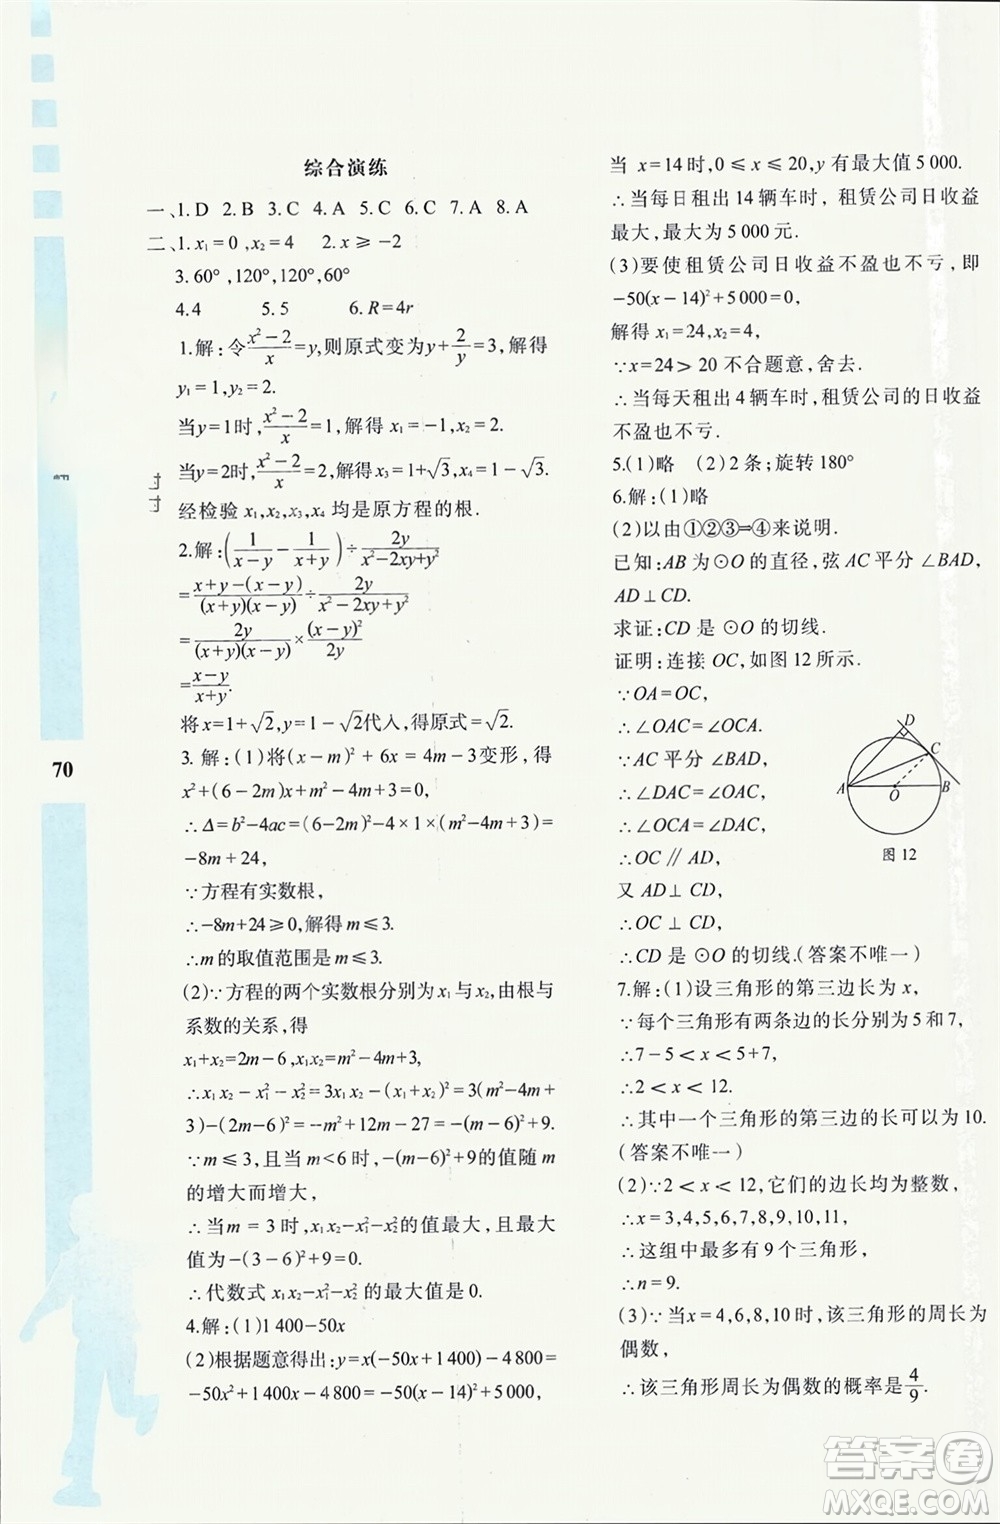 综合演练
一、1. D 2. B 3. C 4. A 5. C 6. C 7. A 8. A
二、1. x₁=0, x₂=4 2. x≥-2
3. 60°,120°,120°,60°
4. 4 5. 5 6. R=4r
1.解:令(x²-2)/x=y,则原式变为y+2/y=3,解得
y₁=1,y₂=2.
当y=1时,(x²-2)/x=1,解得 x₁=-1,x₂=2.
当y=2时,(x²-2)/x=2,解得 x₃=1+√3,x₄=1-√3.
经检验 x₁,x₂,x₃,x₄ 均是原方程的根.
2.解:(1/(x-y) - 1/(x+y))÷2y/(x²-2xy+y²)
=(x+y-(x-y))/((x+y)(x-y))÷2y/(x²-2xy+y²)
=2y/((x-y)(x+y))×(x-y)²/2y
=(x-y)/(x+y).
将x=1+√2,y=1-√2代入,得原式=√2.
3.解:(1)将(x-m)²+6x=4m-3变形,得
x²+(6-2m)x+m²-4m+3=0,
∴Δ=b²-4ac=(6-2m)²-4×1×(m²-4m+3)=
-8m+24,
∵方程有实数根,
∴-8m+24≥0,解得 m≤3.
∴m的取值范围是 m≤3.
(2)∵方程的两个实数根分别为x₁与x₂,由根与
系数的关系,得
x₁+x₂=2m-6,x₁x₂=m²-4m+3,
∴x₁x₂-x₁²-x₂²=3x₁x₂-(x₁+x₂)²=3(m²-4m+
3)-(2m-6)²=-m²+12m-27=-(m-6)²+9.
∵m≤3,且当m<6时,-(m-6)²+9的值随m
的增大而增大,
∴当m=3时,x₁x₂-x₁²-x₂²的值最大,且最大
值为-(3-6)²+9=0.
∴代数式 x₁x₂-x₁²-x₂²的最大值是 0.
4.解:(1)1 400-50x
(2)根据题意得出:y=x(-50x+1 400)-4 800=
-50x²+1 400x-4 800=-50(x-14)²+5 000,
70
当 x=14时,0≤x≤20,y有最大值5 000.
∴当每日租出14辆车时,租赁公司日收益
最大,最大为5 000元.
(3)要使租赁公司日收益不盈也不亏,即
-50(x-14)²+5 000=0,
解得 x₁=24,x₂=4,
∵x=24>20 不合题意,舍去.
∴当每天租出4辆车时,租赁公司的日收益
不盈也不亏.
5.(1)略 (2)2条;旋转180°
6.解:(1)略
(2)以由①②③⇒④来说明.
已知:AB为⊙O的直径,弦AC平分∠BAD,
AD⊥CD.
求证:CD是⊙O的切线.
证明:连接OC,如图12所示.
∵OA=OC,
∴∠OAC=∠OCA.
∵AC平分∠BAD,
∴∠OAC=∠DAC,
∴∠OCA=∠DAC,
∴OC∥AD,
又AD⊥CD,
∴OC⊥CD,
∴CD是⊙O的切线.(答案不唯一)
D
C
A
O
B
图12
7.解:(1)设三角形的第三边长为x,
∵每个三角形有两条边的长分别为5和7,
∴7-5<x<5+7,
∴2<x<12.
∴其中一个三角形的第三边的长可以为10.
(答案不唯一)
(2)∵2<x<12,它们的边长均为整数,
∴x=3,4,5,6,7,8,9,10,11,
∴这组中最多有9个三角形,
∴n=9.
(3)∵当x=4,6,8,10时,该三角形的周长为
偶数,
∴该三角形周长为偶数的概率是4/9.
答案圈
MXQE.COM